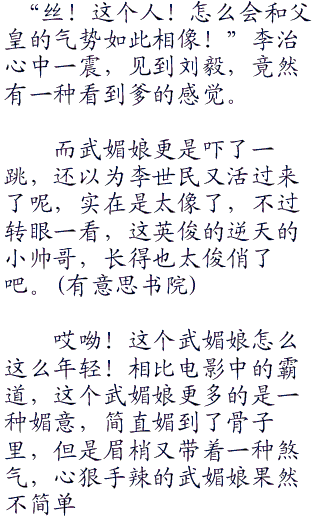 “丝！这个人！怎么会和父
皇的气势如此相像！”李治
心中一震，见到刘毅，竟然
有一种看到爹的感觉。
而武媚娘更是吓了一
跳，还以为李世民又活过来
了呢，实在是太像了，不过
转眼一看，这英俊的逆天的
小帅哥，长得也太俊俏了
吧。(有意思书院)
哎呦！这个武媚娘怎么
这么年轻！相比电影中的霸
道，这个武媚娘更多的是一
种媚意，简直媚到了骨子
里，但是眉梢又带着一种煞
气，心狠手辣的武媚娘果然
不简单